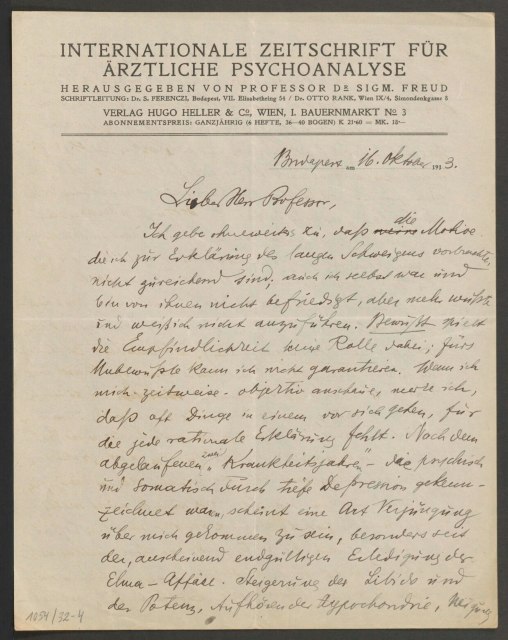 INTERNATIONALE ZEITSCHRIFT FÜR
ÄRZTLICHE PSYCHOANALYSE
HERAUSGEGEBEN VON PROFESSOR DR SIGM. FREUD
SCHRIFTLEITUNG: Dr. S. FERENCZI, Budapest, VII. Elisabethring 54 / Dr. OTTO RANK, Wien IX/4, Simondenkgasse 8
VERLAG HUGO HELLER & Co, WIEN, I. BAUERNMARKT No 3
ABONNEMENTSPREIS: GANZJÄHRIG (6 HEFTE, 36–40 BOGEN) K 21·60 = MK. 18·—
Budapest am 16. Oktober 1913.
Lieber Herr Professor,
Ich gebe ohneweiters zu, daß meine die Motive
die ich zur Erklärung des langen Schweigens vorbrachte,
nicht zureichend sind; auch ich selbst war und
bin von ihnen nicht befriedigt, aber mehr wußte
und weiß ich nicht anzuführen. Bewußt spielt
die Empfindlichkeit keine Rolle dabei; fürs
Unbewußte kann ich nicht garantieren. Wenn ich
mich zeitweise objektiv anschaue, merke ich,
daß oft Dinge in einem vor sich gehen, für
die jede rationale Erklärung fehlt. Nach den
abgelaufenen zwei „Krankheitsjahren“ – die psychisch
und somatisch durch tiefe Depression gekenn-
zeichnet waren, scheint eine Art Verjüngung
über mich gekommen zu sein, besonders seit
der, anscheinend endgültigen Erledigung der
Elma-Affäre. Steigerung der Libido und
der Potenz, Aufhören der Hypochondrie, Neigung
1054/32-4